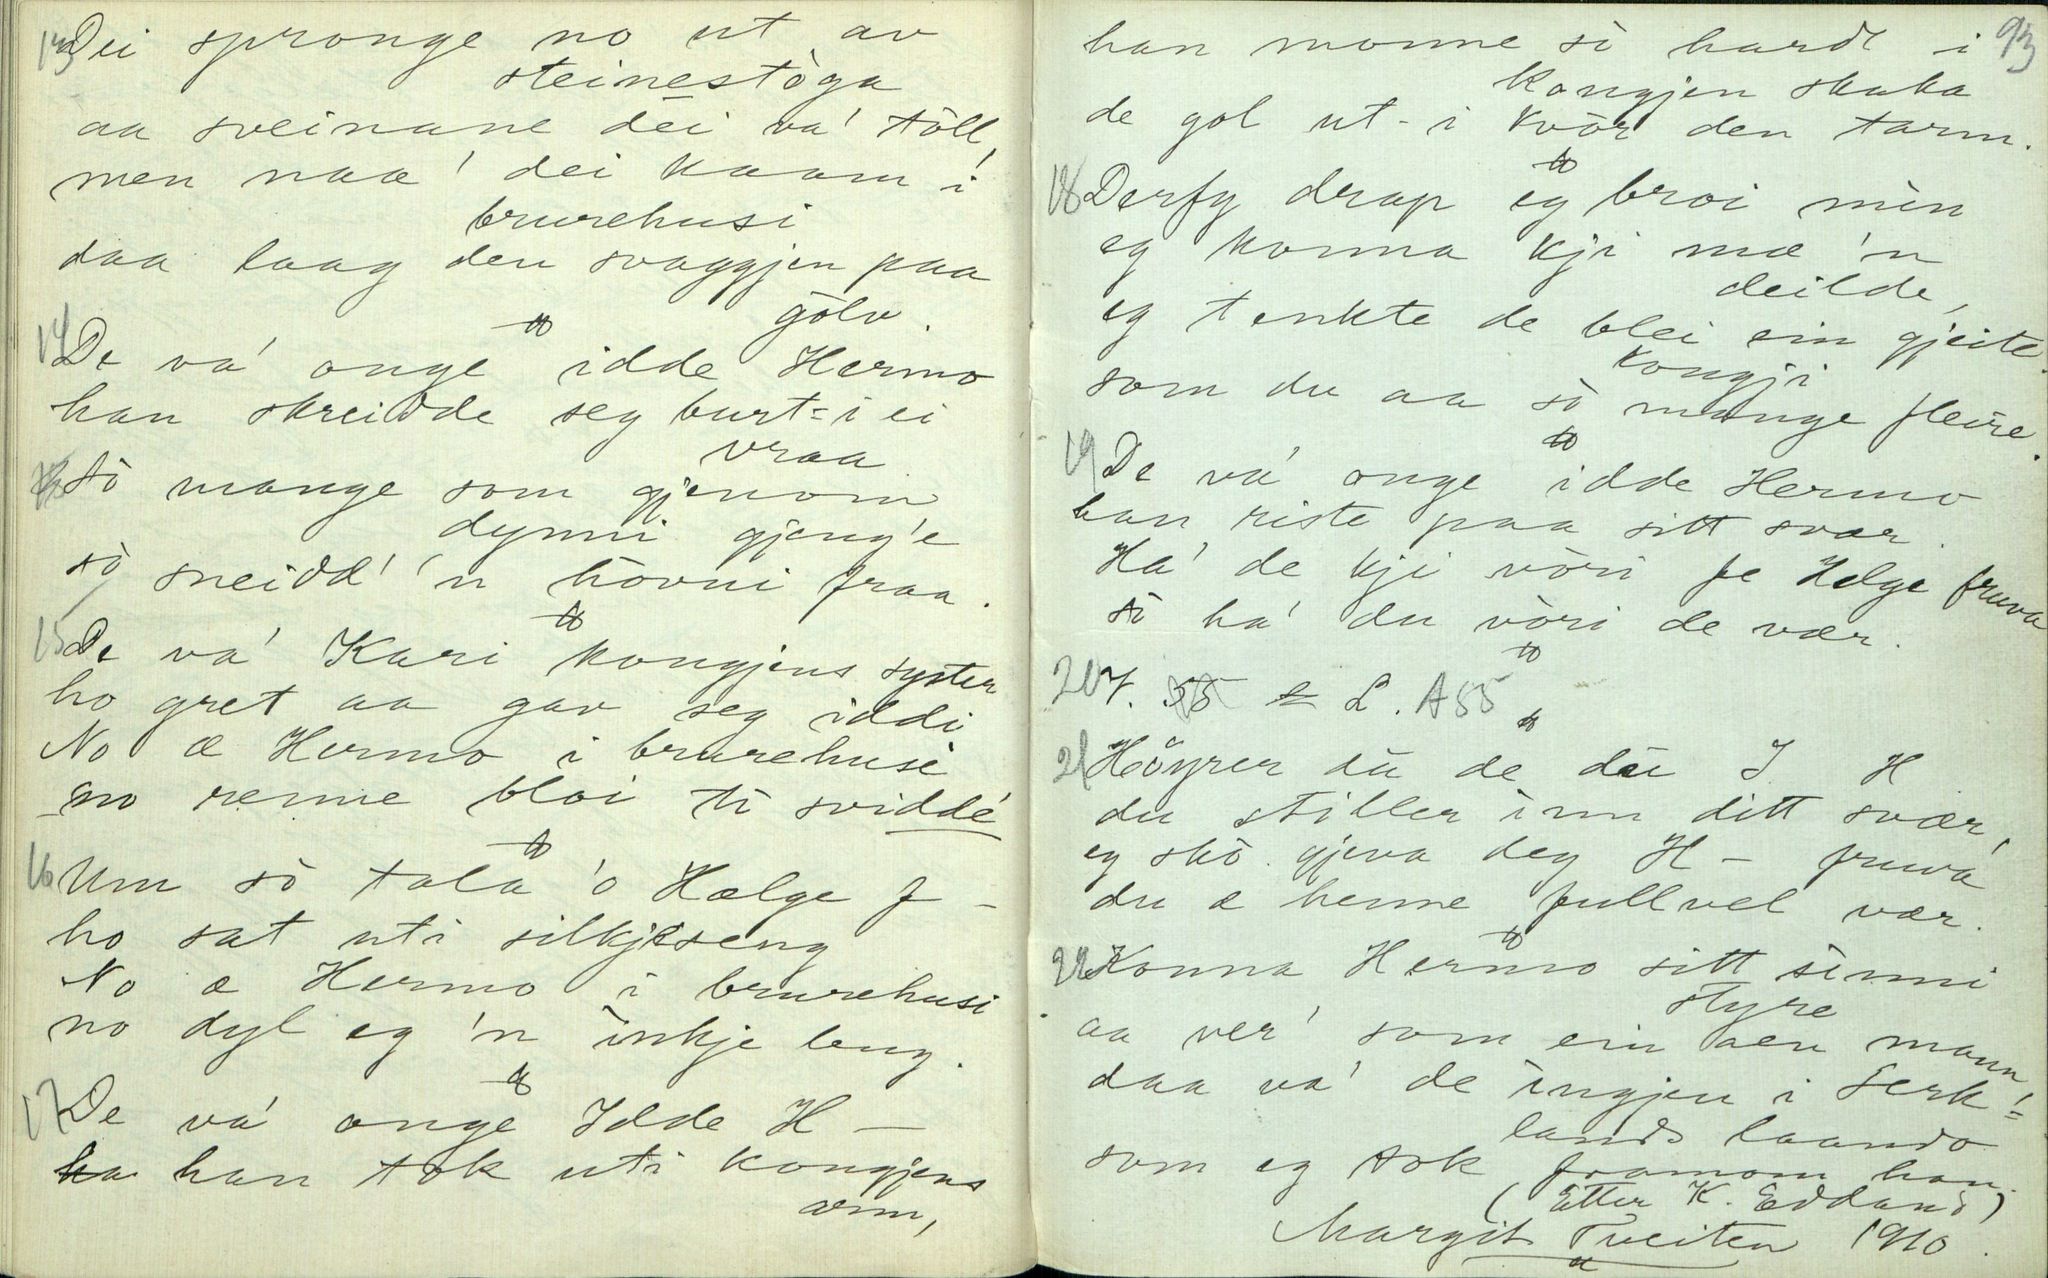 13 Dei spronge no ut av
steinestòga
aa sveinane dei va' töll,
men naa' dei kaam i
brurehusi
daa laag den svaggjen paa
gölv.
14 De va' onge idde Hermo
han skreidde seg burt-i ei
vraa
Sò mange som gjenom
dynni gjeng'e
sò sneidd' 'n hòvni fraa.
15 De va' Kari kongjens syster
ho gret aa gav seg iddi
No æ Hermo i brurehusi
no renne bloi ti sviddé
16 Um sò tala 'o Hælge f –
ho sat uti silkjeseng
No æ Hermo i brurehusi
no dyl eg 'n inkje leng.
17 De va' onge Idde H –
han tok uti kongjens
arm,
93
han monne sò hardt i
kongjen skaka
de gol ut-i kvòr den tarm.
18 Derfy drap eg broi min
eg konna kji mæ 'n
deilde,
eg tenkte de blei ein gjeite-
kongji
som du aa sò mange fleire.
19 De va' onge idde Hermo
han riste paa sitt svær.
Ha' de kji vòri fe Helge fruva
sò ha' du vòri de vær.
20 V. 55 L. A55
21 Höyrer du de du I H
du stiller inn ditt svær,
eg skò gjeva deg H – fruva
du æ henne fullvel vær.
22 Konna Hermo sitt sinni
styre
aa ver' som ein aen mann
daa va' de ingjen i Serk'-
lands laando
som eg tok framom han.
(Etter K. Eddand)
Margit Tveiten 1910.